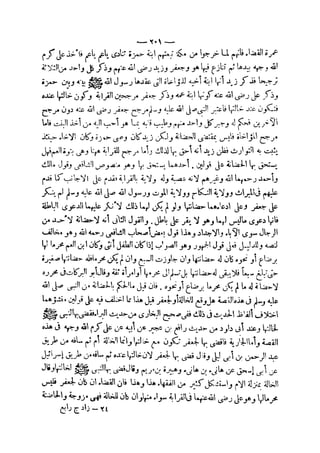 — ٢٠١ —
عمرة القضاء. فانهم لما خرجوا من مكة تبعتهم ابنة حمزة تنادى ياعم ياعم فاخذ على كرم
الله وجهه بيدها ثم تنازع فيها هو وجعفر وزيد رضى الله عنهم وذكر كل واحد من الثلاثة
ترجيحا فذكر زيد أنها ابنة أخيه للمؤاخاة التى عقدها رسول الله ﷺ بينه وبين حمزة
وذكر على رضى الله عنه كونها ابنة عمه وذكر جعفر مرجحين القرابة وكون خالتها عنده
فتكون عند خالتها فاعتبر النبى صلى الله عليه وسلم مرجح جعفر رضى الله عنه دون مرجح
الآخرين فحكم له وجبر كل واحد منهم وطيب قلبه بما هو أحب اليه من أخذ البنت فأما
مرجح المؤاخاة فليس بمقتضى الحضانة ولكن زيد كان وصى حمزة وكان الاخاء حينئذ
يثبت به التوارث فظن زيد أنه أحق بها لذلك وأما مرجح القرابة هنا وهى بنوة العم فهل
يستحق بها الحضانة على قولين. أحدهما يستحق بها وهو منصوص الشافعى وقول مالك
وأحمد رحمهم الله وغيرهم لانه عصبة وله ولاية بالقرابة فقدم على الاجانب كما قدم
عليهم فى الميراث وولاية النكاح وولاية الموت ورسول الله صلى الله عليه وسلم لم ينكر
على جعفر وعلى ادعاءهما حضانتها ولو لم يكن لهما ذلك لانكر عليهما الدعوى الباطلة
فانها دعوى ماليس لهما وهو لا يقر على باطل. والقول الثانى أنه لاحضانة لاحد من
الرجال سوى الآباء والاجداد وهذا قول بعض أصحاب الشافعى رحمه الله وهو مخالف
لنصه وللدليل فعلى قول الجمهور وهو الصواب إذا كان الطفل أنثى وكان ابن العم محرما لها
برضاع أو نحوه كان له حضانتها وان جاوزت السبع وان لم يكن محرما فله حضانتها صغيرة
حتى تبلغ سبعا فلا يبقى له حضانتها بل تسلم الى محرمها أوامرأة ثقة وقال أبو البركات فى محرره
لاحضانة له ما لم يكن محرما برضاع أو نحوه. فان قيل فالحكم بالحضانة من النبى صلى الله
عليه وسلم فى هذه القصة هل وقع للخالة أو لجعفر قيل هذا مما اختلف فيه على قولين منشؤهما
اختلاف ألفاظ الحديث فى ذلك ففى صحيح البخارى من حديث البراء فقضى بها النبى ﷺ
لخالتها وعند أبى داود من حديث رافع بن عجير عن أبيه عن على كرم الله وجهه فى هذه
القصة وأما الجارية فاقضى بها لجعفر تكون مع خالتها وانما الخالة أم ثم ساقه من طريق
عبد الرحمن بن أبى ليلى وقال قضى بها لجعفر لان خالتها عنده ثم ساقه من طريق إسرائيل
عن أبى إسحق عن هانىء بن هانىء وهبيرة بن يريم وقال فقضى بها النبى ﷺ لخالتها وقال
الخالة بمنزلة الام واستشكل كثير من الفقهاء هذا وهذا فان القضاء ان كان لجعفر فليس
محرما لها وهو وعلى رضى الله عنهما فى القرابة سواء منها وان كان للخالة فهى مزوجة والحاضنة
٢٤ — زاد ج رابع